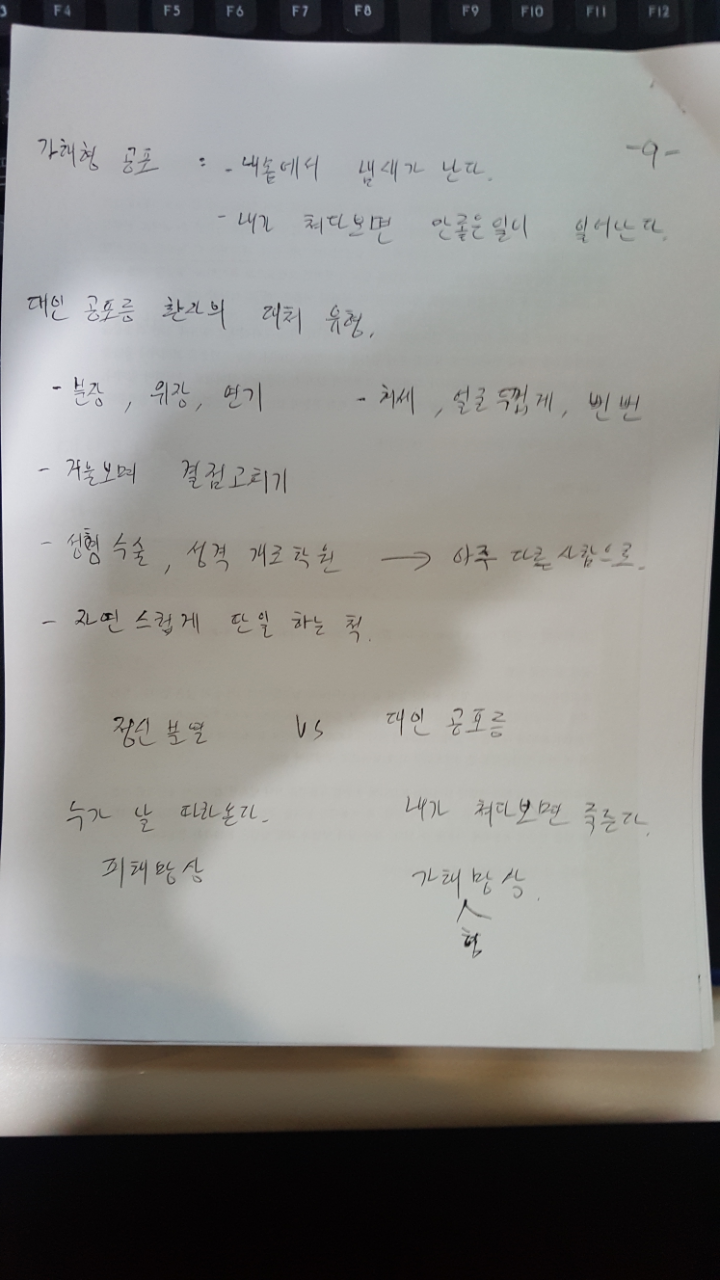 F4 F5 F6 F7 F8 F9 F10 F11 F12
-9-
가해형 공포 : - 내몸에서 냄새가 난다.
- 내가 쳐다보면 안좋은일이 일어난다.
대인 공포증 환자의 대처 유형.
- 분장, 위장, 연기 - 처세, 얼굴두껍게, 뻔뻔
- 거울보며 결점고치기
- 성형수술, 성격 개조학원 → 아주 다른 사람으로.
- 자연스럽게 단일 하는 척.
정신분열 VS 대인 공포증
누가 날 따라온다. 내가 쳐다보면 죽는다.
피해망상 가해망상.
형